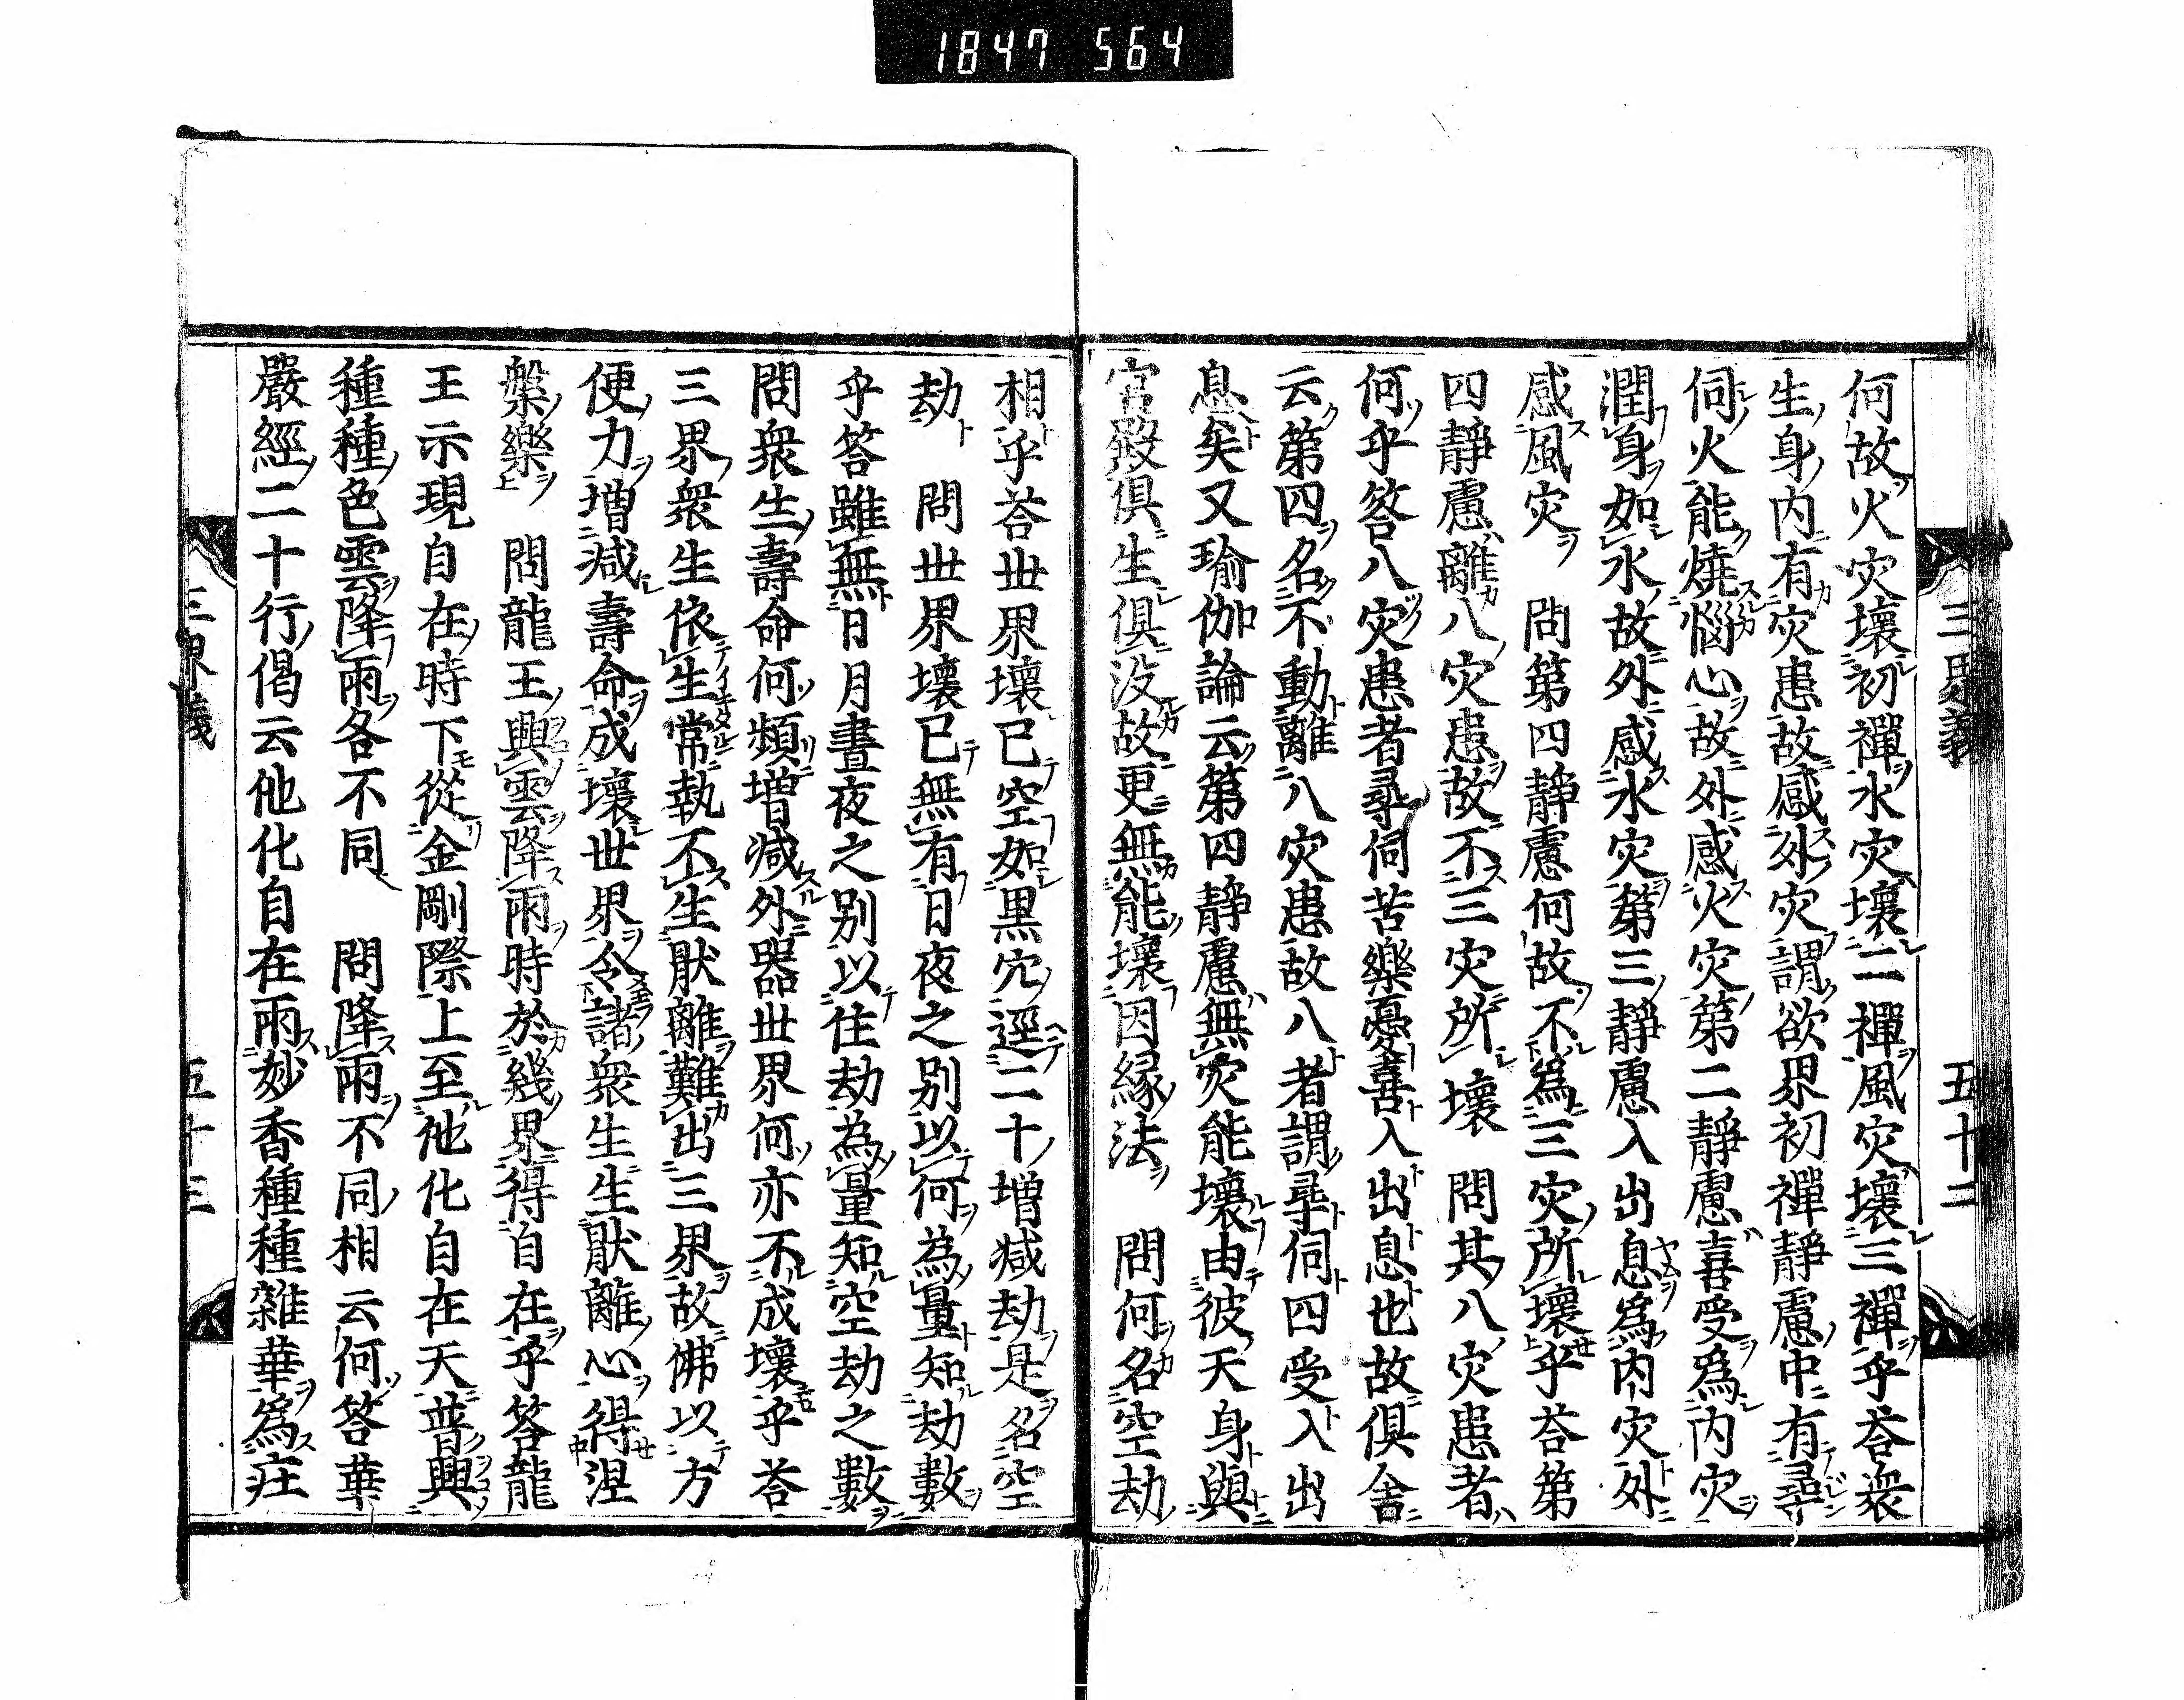 1847 564
三界義 五十二
何故火灾壞初禪水灾壞二禪風灾壞三禪乎荅衆
生身内有灾患故感外灾謂欲界初禪靜慮中有尋
伺火能燒惱心故外感火灾第二靜慮喜受爲内灾
潤身如水故外感水灾第三靜慮入出息爲内灾外
感風灾　問第四靜慮何故不爲三灾所壞乎荅第
四靜慮離八灾患故不三灾所壞　問其八灾患者
何乎答八灾患者尋伺苦樂憂喜入出息也故俱舍
云第四名不動離八灾患故八者謂尋伺四受入出
息矣又瑜伽論云第四靜慮無灾能壞由彼天身與
宮殿俱生俱没故更無能壞因縁法　問何名空劫
相乎荅世界壞已空如黒穴逕二十增减劫是名空
劫　問世界壞已無有日夜之別以何為量知劫數
乎答雖無日月晝夜之別以住劫為量知空劫之數
問衆生壽命何頻增减外器世界何亦不成壞乎荅
三界衆生依生常執不生猒離難出三界故佛以方
便力增减壽命成壞世界令諸衆生生猒離心得涅
槃樂　問龍王興雲降雨時於幾界得自在乎答龍
王示現自在時下從金剛際上至他化自在天普興
種種色雲降雨各不同　問降雨不同相云何答華
嚴經二十行偈云他化自在雨妙香種種雜華爲莊
三界義 五十三